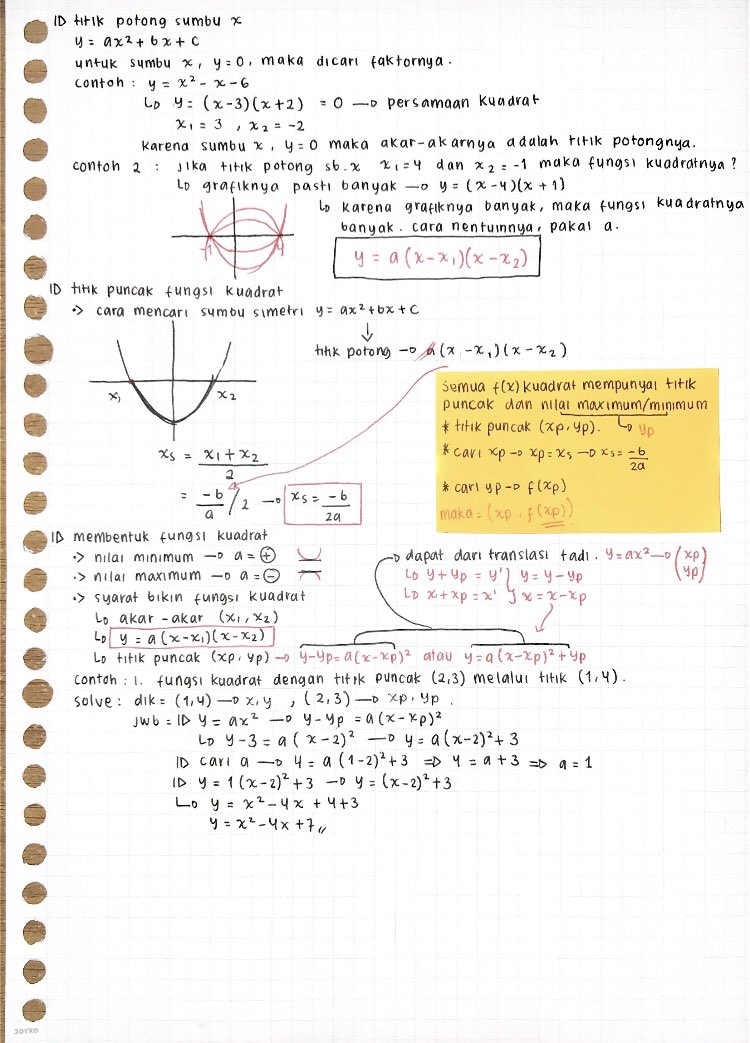 ⇒ titik potong sumbu x
y = ax² + bx + c
untuk sumbu x, y=0, maka dicari faktornya.
contoh : y = x² - x - 6
↳ y = (x-3)(x+2) = 0 → persamaan kuadrat
x₁ = 3 , x₂ = -2
karena sumbu x, y=0 maka akar-akarnya adalah titik potongnya.
contoh 2 : jika titik potong sb.x x₁=4 dan x₂=-1 maka fungsi kuadratnya ?
↳ grafiknya pasti banyak → y = (x-4)(x+1)
↳ karena grafiknya banyak, maka fungsi kuadratnya
banyak. cara nentuinnya, pakai a.
-1 4
y = a(x-x₁)(x-x₂)
⇒ titik puncak fungsi kuadrat
·> cara mencari sumbu simetri y = ax²+bx+c
↓
titik potong → a(x-x₁)(x-x₂)
x₁ x₂
xs = x₁+x₂/2
= -b/a / 2 → xs = -b/2a
semua f(x) kuadrat mempunyai titik
puncak dan nilai maximum/minimum
* titik puncak (xp, yp). ↳ yp
* cari xp → xp = xs → xs = -b/2a
* cari yp → f(xp)
maka = (xp, f(xp))
⇒ membentuk fungsi kuadrat
·> nilai minimum → a = ⊕
·> nilai maximum → a = ⊖
·> syarat bikin fungsi kuadrat
↳ akar-akar (x₁, x₂)
↳ y = a(x-x₁)(x-x₂)
↳ titik puncak (xp, yp) → y-yp = a(x-xp)² atau y = a(x-xp)² + yp
→ dapat dari translasi tadi. y = ax² → (xp yp)
↳ y + yp = y' } y = y-yp
↳ x + xp = x' } x = x-xp
contoh : 1. fungsi kuadrat dengan titik puncak (2,3) melalui titik (1,4).
solve : dik = (1,4) → x, y , (2,3) → xp, yp.
jwb = ⇒ y = ax² → y-yp = a(x-xp)²
↳ y-3 = a(x-2)² → y = a(x-2)²+3
⇒ cari a → 4 = a(1-2)²+3 ⇒ 4 = a+3 ⇒ a = 1
⇒ y = 1(x-2)²+3 → y = (x-2)²+3
↳ y = x²-4x+4+3
y = x²-4x+7,,
JOYKO